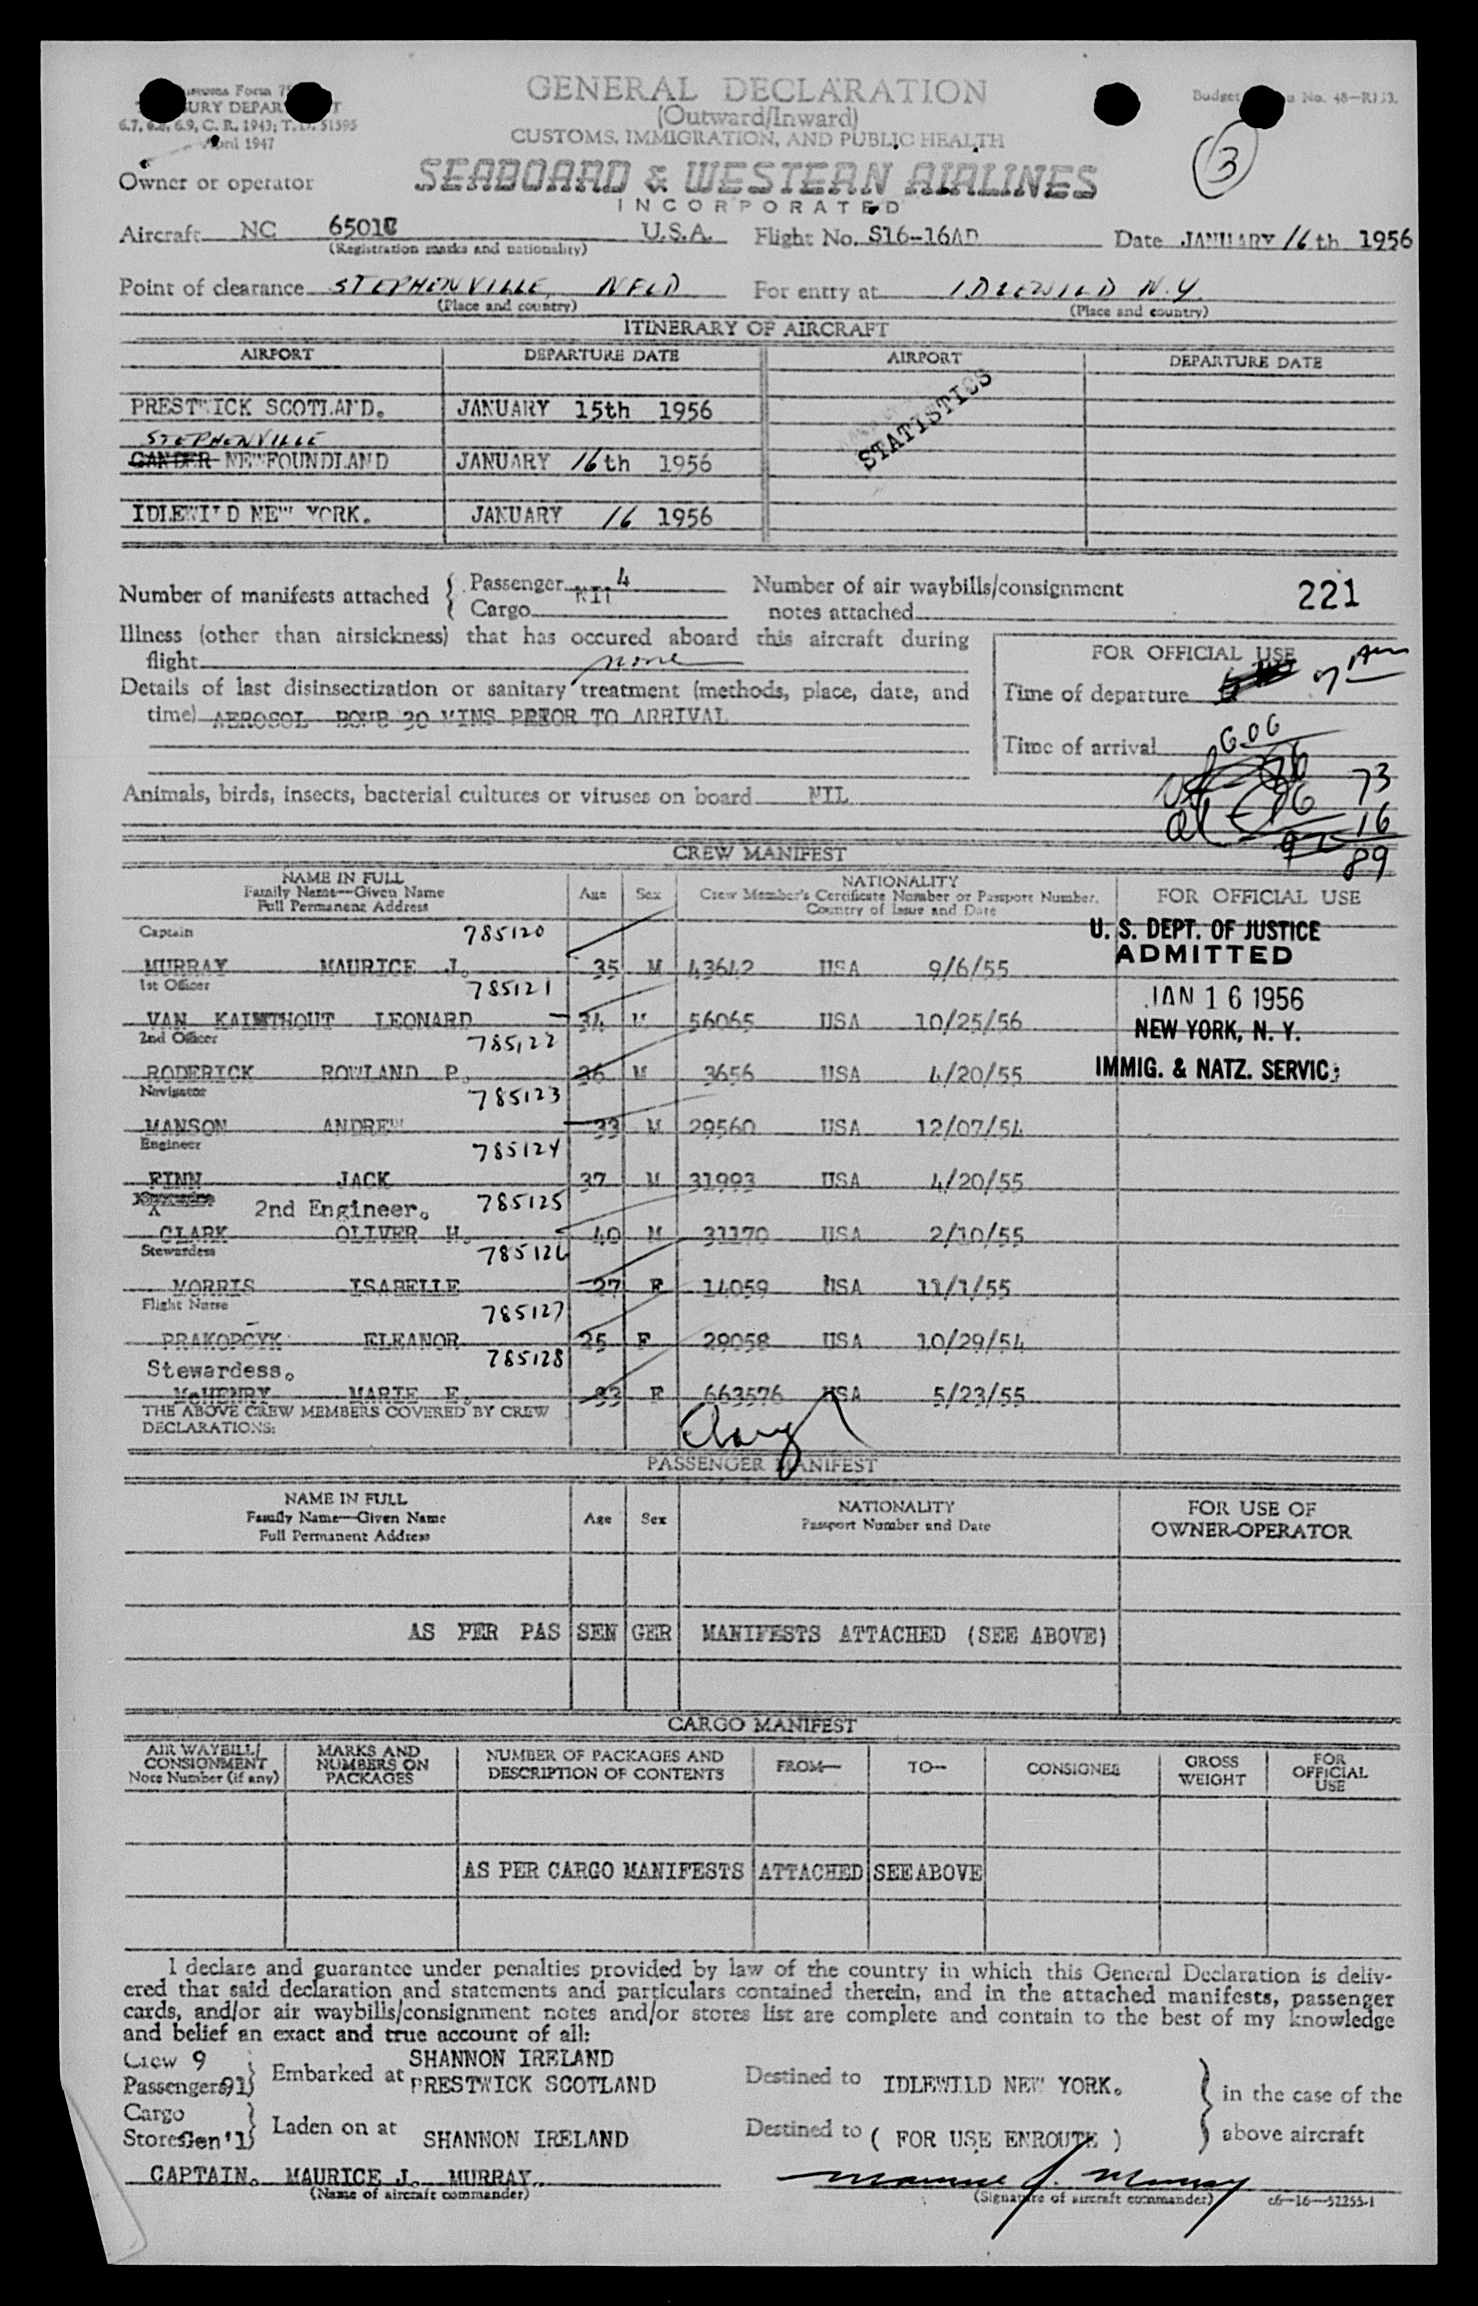 Customs Form
TREASURY DEPARTMENT
6.7, 6.8, 6.9, C. R. 1943; T. D. 51595
April 1947
GENERAL DECLARATION
(Outward/Inward)
CUSTOMS, IMMIGRATION, AND PUBLIC HEALTH
Budget No. 48—R133.
3
Owner or operator
SEABOARD & WESTERN AIRLINES
INCORPORATED
Aircraft NC 6501C U.S.A. Flight No. S16-16AD Date JANUARY 16th 1956
(Registration marks and nationality)
Point of clearance STEPHENVILLE, NFLD For entry at IDLEWILD N.Y.
(Place and country) (Place and country)
ITINERARY OF AIRCRAFT
AIRPORT DEPARTURE DATE AIRPORT DEPARTURE DATE
STATISTICS
PRESTWICK SCOTLAND. JANUARY 15th 1956
STEPHENVILLE
GANDER NEWFOUNDLAND JANUARY 16th 1956
IDLEWILD NEW YORK. JANUARY 16 1956
Number of manifests attached { Passenger 4
Cargo NIL
Number of air waybills/consignment
notes attached 221
Illness (other than airsickness) that has occured aboard this aircraft during
flight none
Details of last disinsectization or sanitary treatment (methods, place, date, and
time) AEROSOL BOMB 30 MINS PREOR TO ARRIVAL
FOR OFFICIAL USE
Time of departure 7 AM
Time of arrival 606
Animals, birds, insects, bacterial cultures or viruses on board NIL
73
16
89
CREW MANIFEST
NAME IN FULL
Family Name—Given Name
Full Permanent Address
Age Sex
NATIONALITY
Crew Member's Certificate Number or Passport Number,
Country of Issue and Date
FOR OFFICIAL USE
U. S. DEPT. OF JUSTICE
ADMITTED
JAN 16 1956
NEW YORK, N. Y.
IMMIG. & NATZ. SERVIC
Captain 785120
MURRAY MAURICE J. 35 M 43642 USA 9/6/55
1st Officer 785121
VAN KAIMTHOUT LEONARD 34 M 56065 USA 10/25/56
2nd Officer 785122
RODERICK ROWLAND P. 36 M 3656 USA 4/20/55
Navigator 785123
MANSON ANDREW 33 M 29560 USA 12/07/54
Engineer 785124
FINN JACK 37 M 31993 USA 4/20/55
2nd Engineer. 785125
CLARK OLIVER H. 40 M 31170 USA 2/10/55
Stewardess 785126
MORRIS ISABELLE 27 F 14059 USA 11/1/55
Flight Nurse 785127
PRAKOPCYK ELEANOR 25 F 29058 USA 10/29/54
Stewardess. 785128
McHENRY MARIE E. 33 F 663576 USA 5/23/55
THE ABOVE CREW MEMBERS COVERED BY CREW
DECLARATIONS:
PASSENGER MANIFEST
NAME IN FULL
Family Name—Given Name
Full Permanent Address
Age Sex
NATIONALITY
Passport Number and Date
FOR USE OF
OWNER-OPERATOR
AS PER PAS SEN GER MANIFESTS ATTACHED (SEE ABOVE)
CARGO MANIFEST
AIR WAYBILL/
CONSIGNMENT
Note Number (if any)
MARKS AND
NUMBERS ON
PACKAGES
NUMBER OF PACKAGES AND
DESCRIPTION OF CONTENTS
FROM— TO— CONSIGNEE
GROSS
WEIGHT
FOR
OFFICIAL
USE
AS PER CARGO MANIFESTS ATTACHED SEE ABOVE
I declare and guarantee under penalties provided by law of the country in which this General Declaration is deliv-
ered that said declaration and statements and particulars contained therein, and in the attached manifests, passenger
cards, and/or air waybills/consignment notes and/or stores list are complete and contain to the best of my knowledge
and belief an exact and true account of all:
Crew 9
Passengers 91
Embarked at SHANNON IRELAND
PRESTWICK SCOTLAND
Destined to IDLEWILD NEW YORK.
in the case of the
Cargo
Stores Gen'l
Laden on at SHANNON IRELAND
Destined to ( FOR USE ENROUTE )
above aircraft
CAPTAIN. MAURICE J. MURRAY.
(Name of aircraft commander)
Maurice J. Murray
(Signature of aircraft commander) c6—16—52255-1